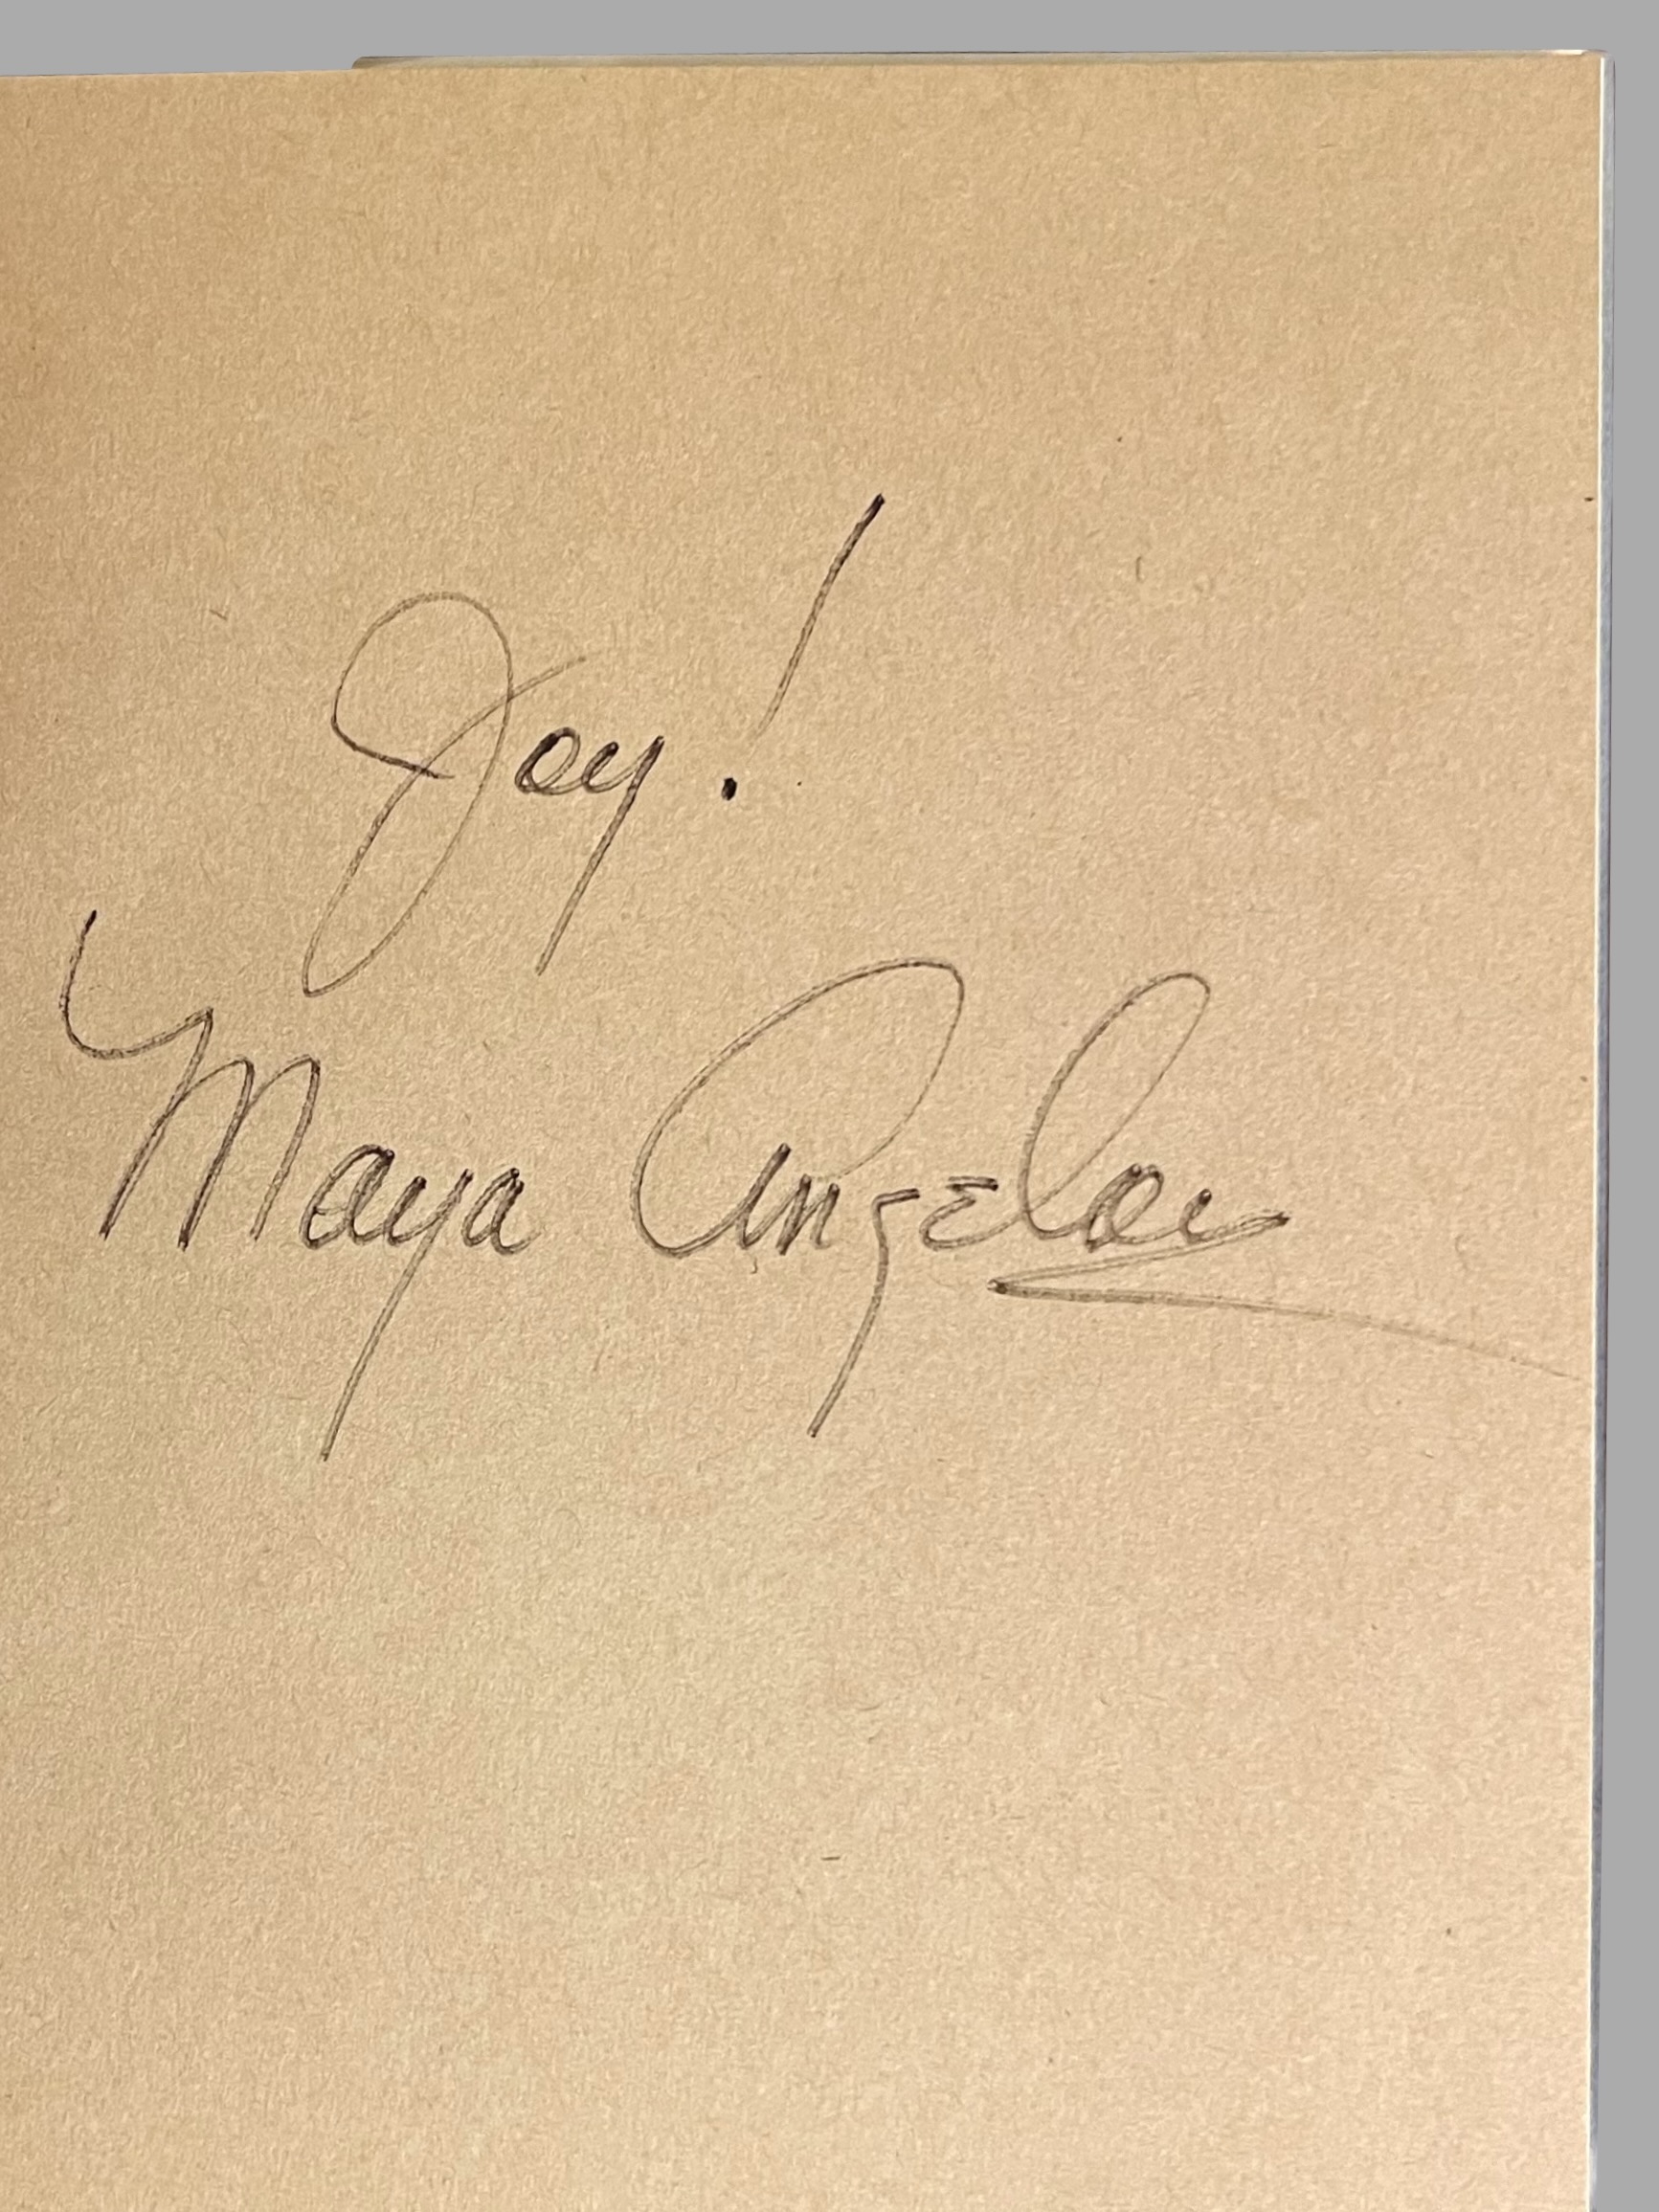 Joy!
Maya Angelou